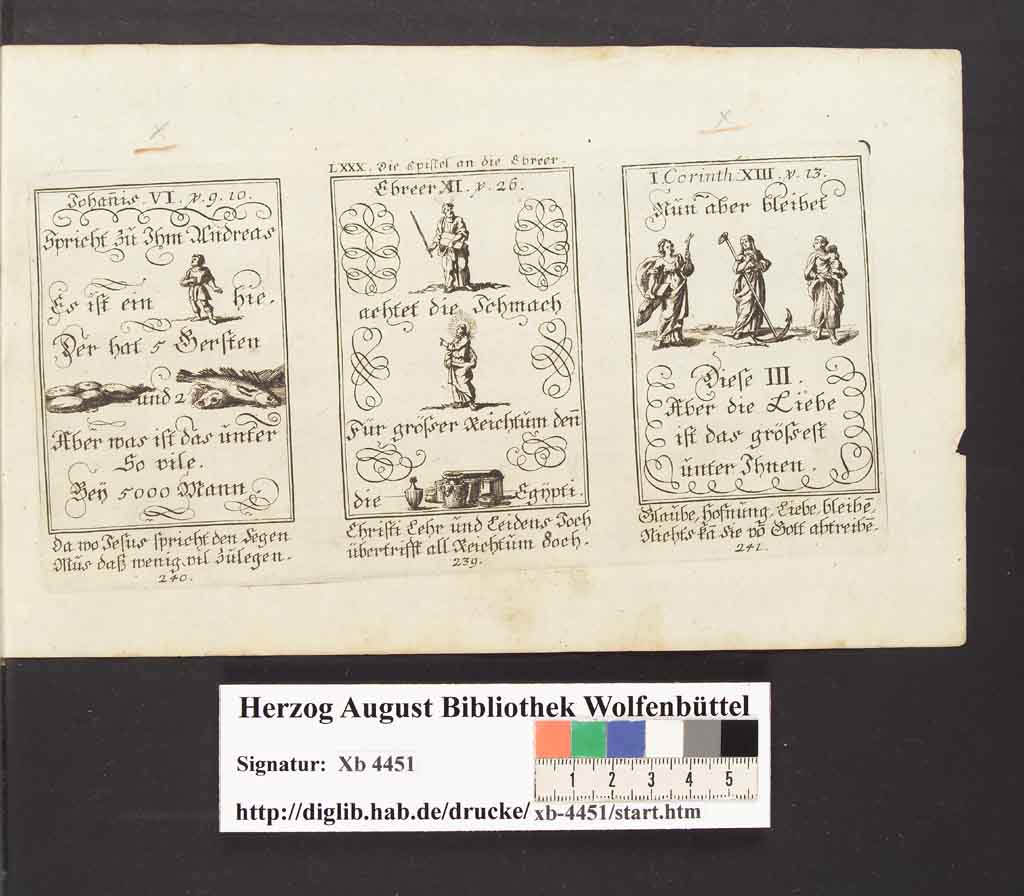 Johan̄is. VI. v. 9. 10.
Spricht zu Ihm Andreas
Es ist ein hie.
Der hat 5 Gersten
und 2
Aber was ist das unter
So vile.
Bey 5000 Mann.
Da wo Jesus spricht den Segen
Mus daß wenig vil zulegen.
240.
LXXX. Die Epistel an die Ebreer.
Ebreer XI. v. 26.
achtet die Schmach
Fur grösser Reichtum den̄
die Egypti.
Christi Lehr und Leidens Joch
übertrifft all Reichtum doch.
239.
I Corinth XIII. v. 13.
Nun aber bleibet
Diese III.
Aber die Liebe
ist das grössest
unter Ihnen.
Glaube, Hofnung, Liebe, bleibē,
Nichts kā sie vō Gott abtreibē.
241.
Herzog August Bibliothek Wolfenbüttel
Signatur: Xb 4451
1 2 3 4 5
http://diglib.hab.de/drucke/xb-4451/start.htm